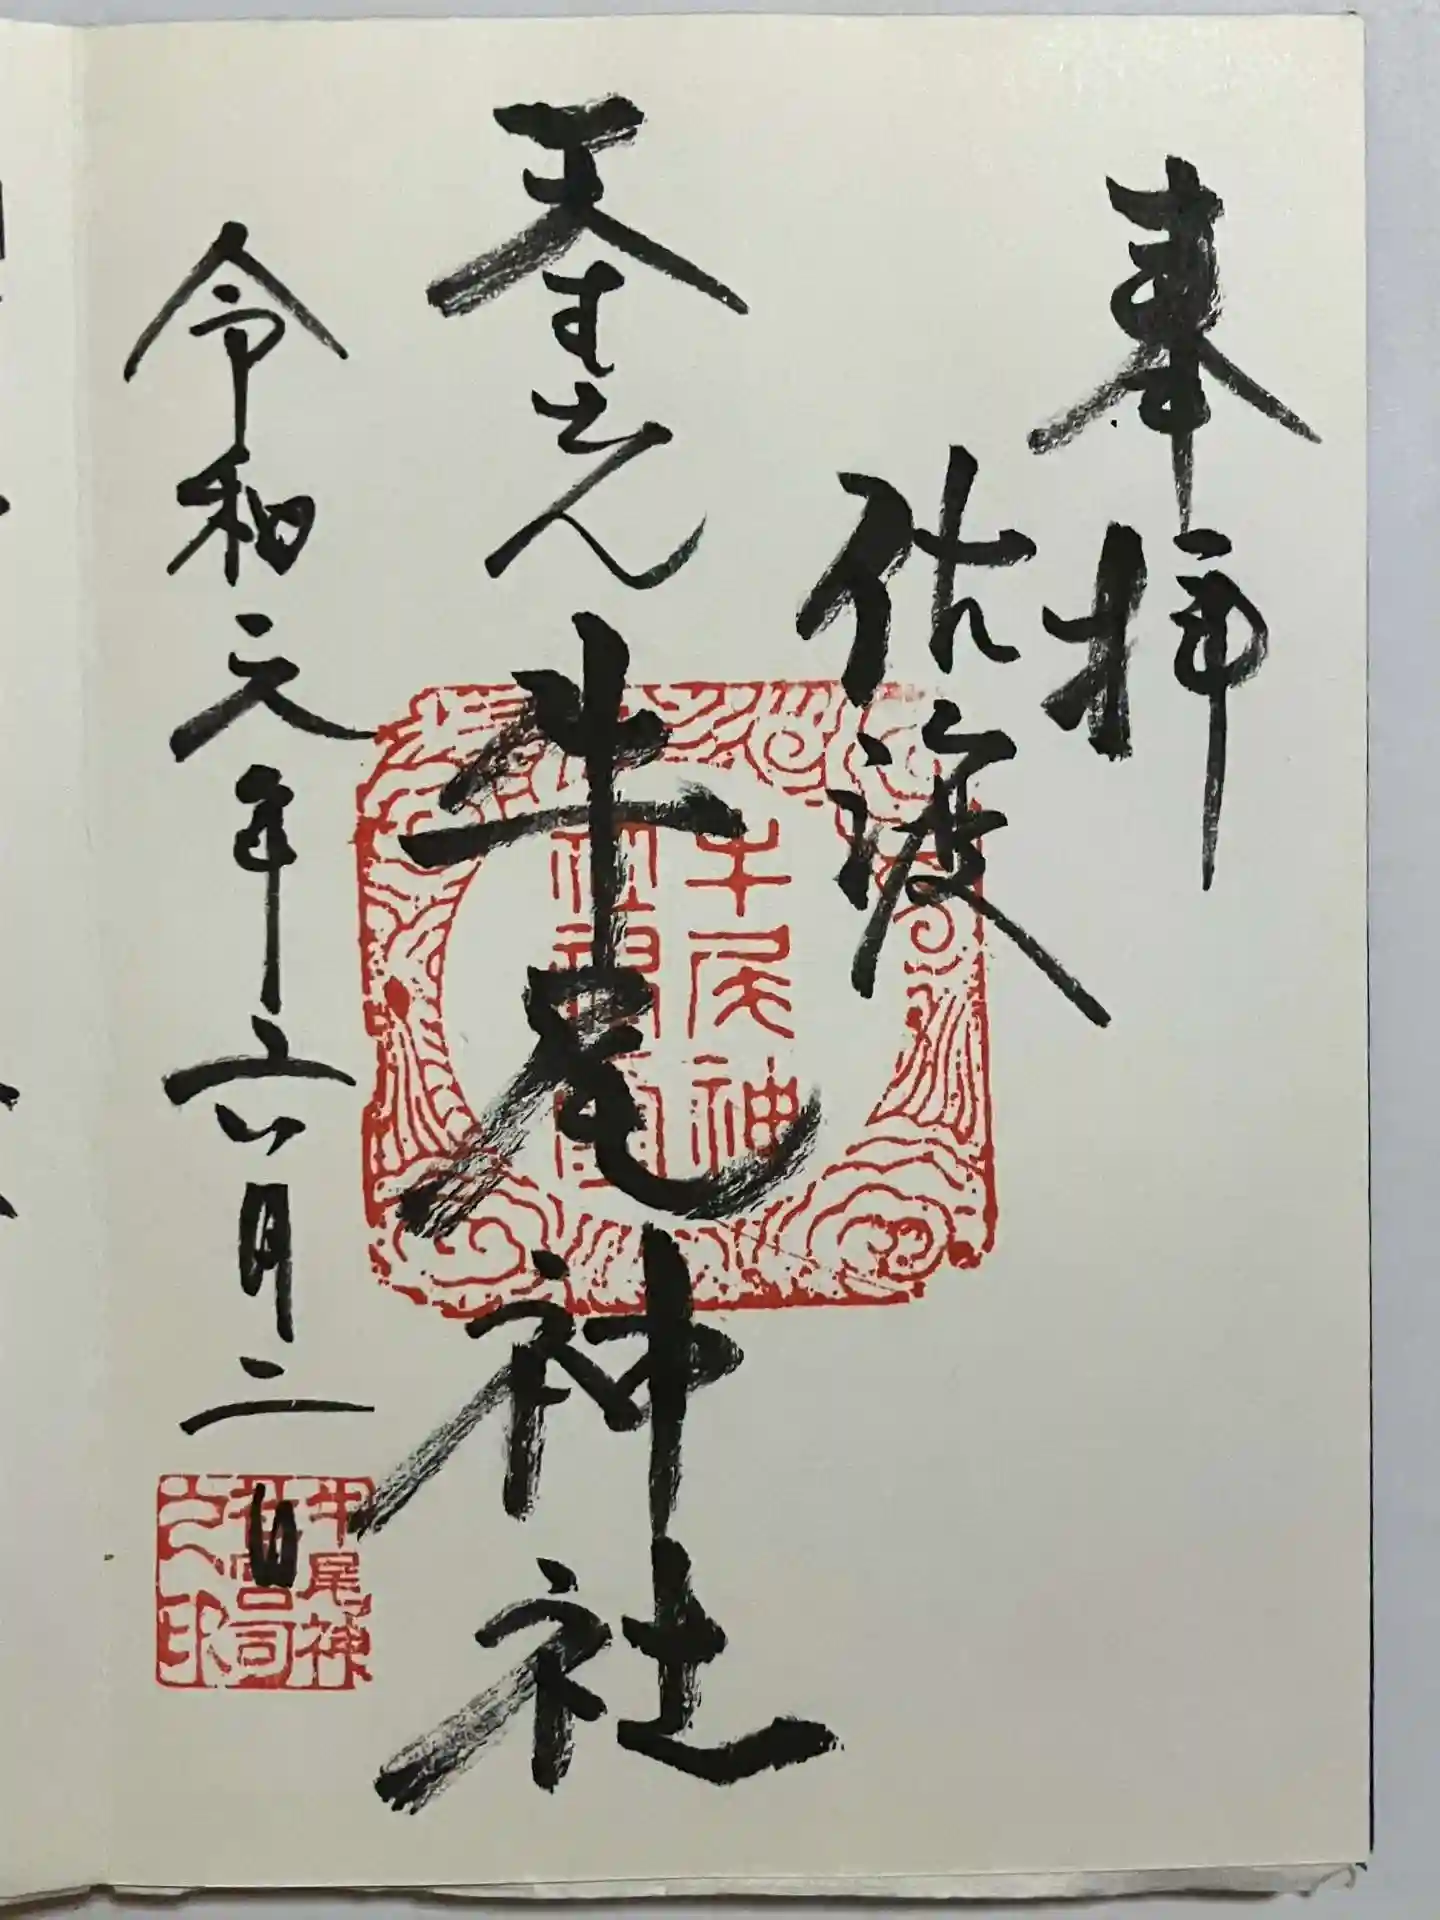 奉拝
佐渡
天王さん 牛尾神社
令和元年六月二日
牛尾神
牛尾神
社宮司
之印